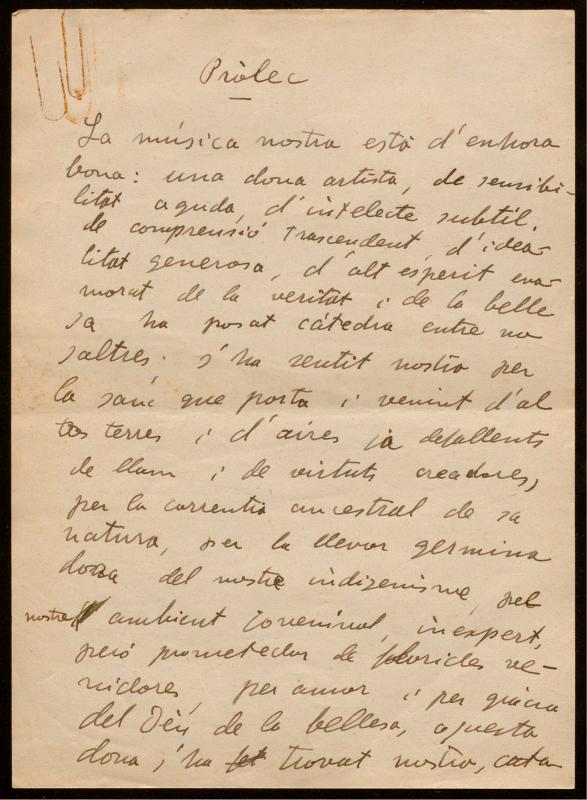 Pròlec
La música nostra està d'enhora
bona: una dona artista, de sensibi-
litat aguda, d'intelecte subtíl,
de comprensió trascendent, d'idea-
litat generosa, d'alt esperit ena-
morat de la veritat i de la belle
sa ha posat càtedra entre no
saltres. S'ha sentit nostra per
la sanc que porta i venint d'al
tres terres i d'aires ja defallents
de llum i de virtuts creadores,
per la correntia ancestral de sa
natura, per la llevor germina
dora del nostre indigenisme, pel
nostre ambient jovenívol, inexpert,
però prometedor de florides ve-
nidores, per amor i per gràcia
del Déu de la bellesa, aquesta
dona s'ha trovat nostra, cata